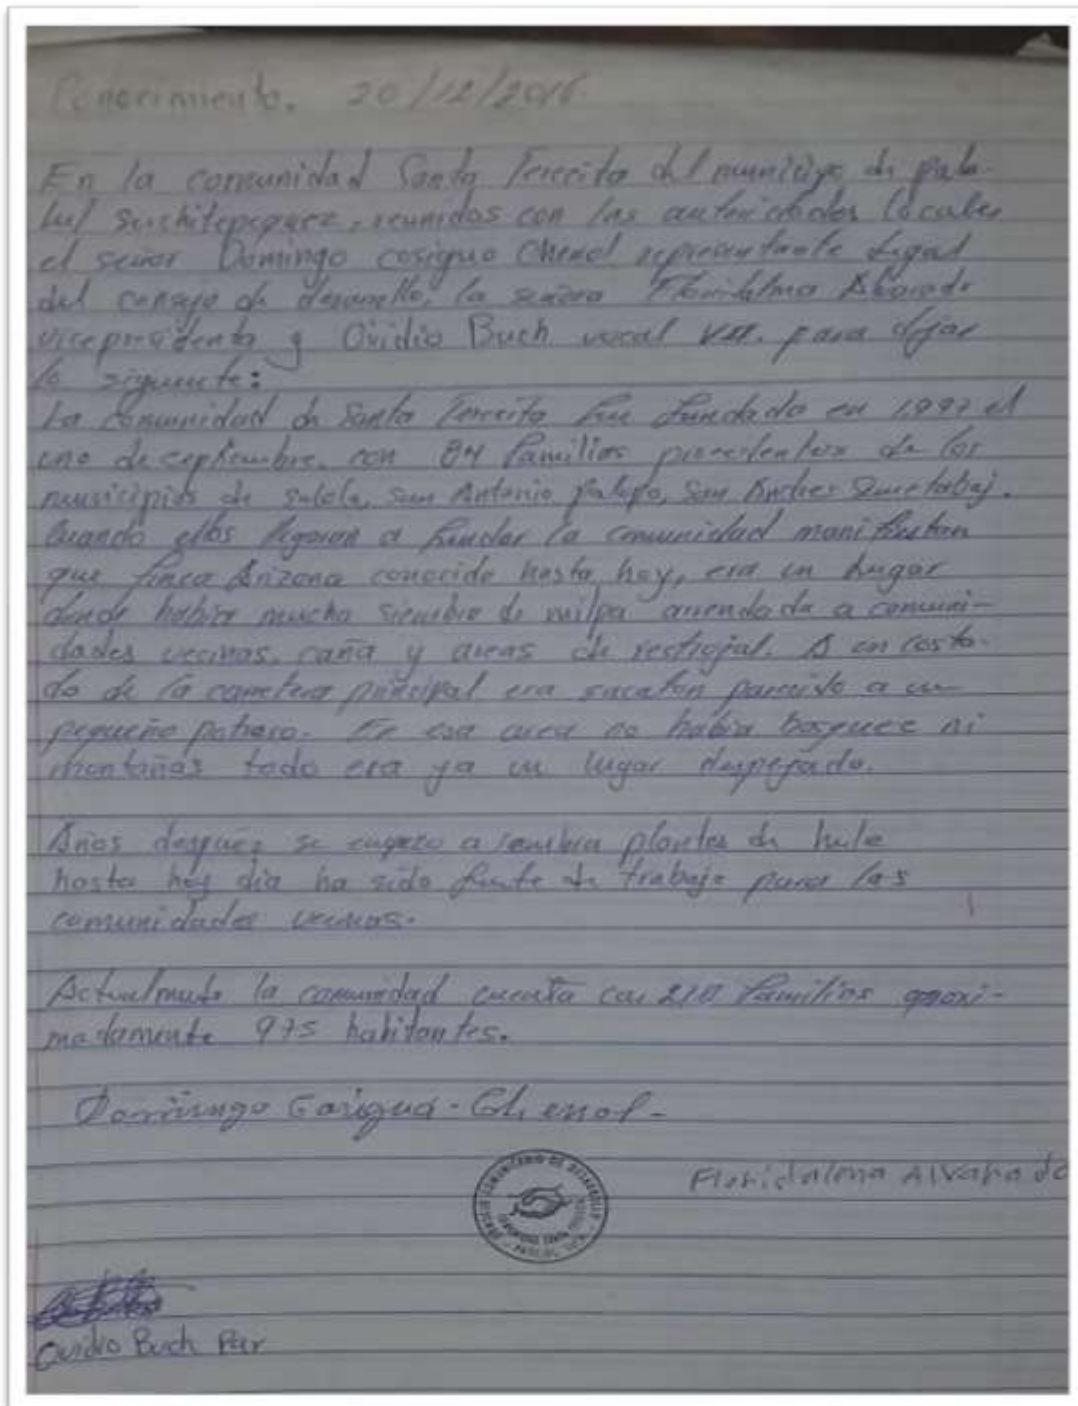 Conocimiento. 20/12/2016
En la comunidad Santa Terecita del municipio de pata-
lul suchitepequez, reunidos con las autoridades locales
el señor Domingo cosiguo Chenol representante legal
del consejo de desarrollo, la señora Floridalma Alvarado
vicepresidenta y Ovidio Buch vocal VII. para dejar
lo siguiente:
La comunidad de Santa Terecita fue fundado en 1,997 el
uno de septiembre, con 84 familias procedentes de los
municipios de solola, san Antonio palopo, San Andres Semetabaj.
Cuando ellos llegaron a fundar la comunidad manifiestan
que finca Arizona conocido hasta hoy, era un lugar
donde habia mucho siembro de milpa arrendada a comuni-
dades vecinas, caña y areas de restrojal. A un costa-
do de la carretera principal era sacaton parecido a un
pequeño potrero. En esa area no habia bosques ni
montañas todo era ya un lugar despejado.
Años despues se empezo a sembra plantas de hule
hasta hoy dia ha sido fuente de trabajo para las
comunidades vecinas.
Actualmente la comunidad cuenta con 210 familias aproxi-
madamente 975 habitantes.
Domingo Cosiguá - Chenol -
Floridalma Alvarado
COMUNITARIO DE DESARROLLO
Ovidio Buch Par